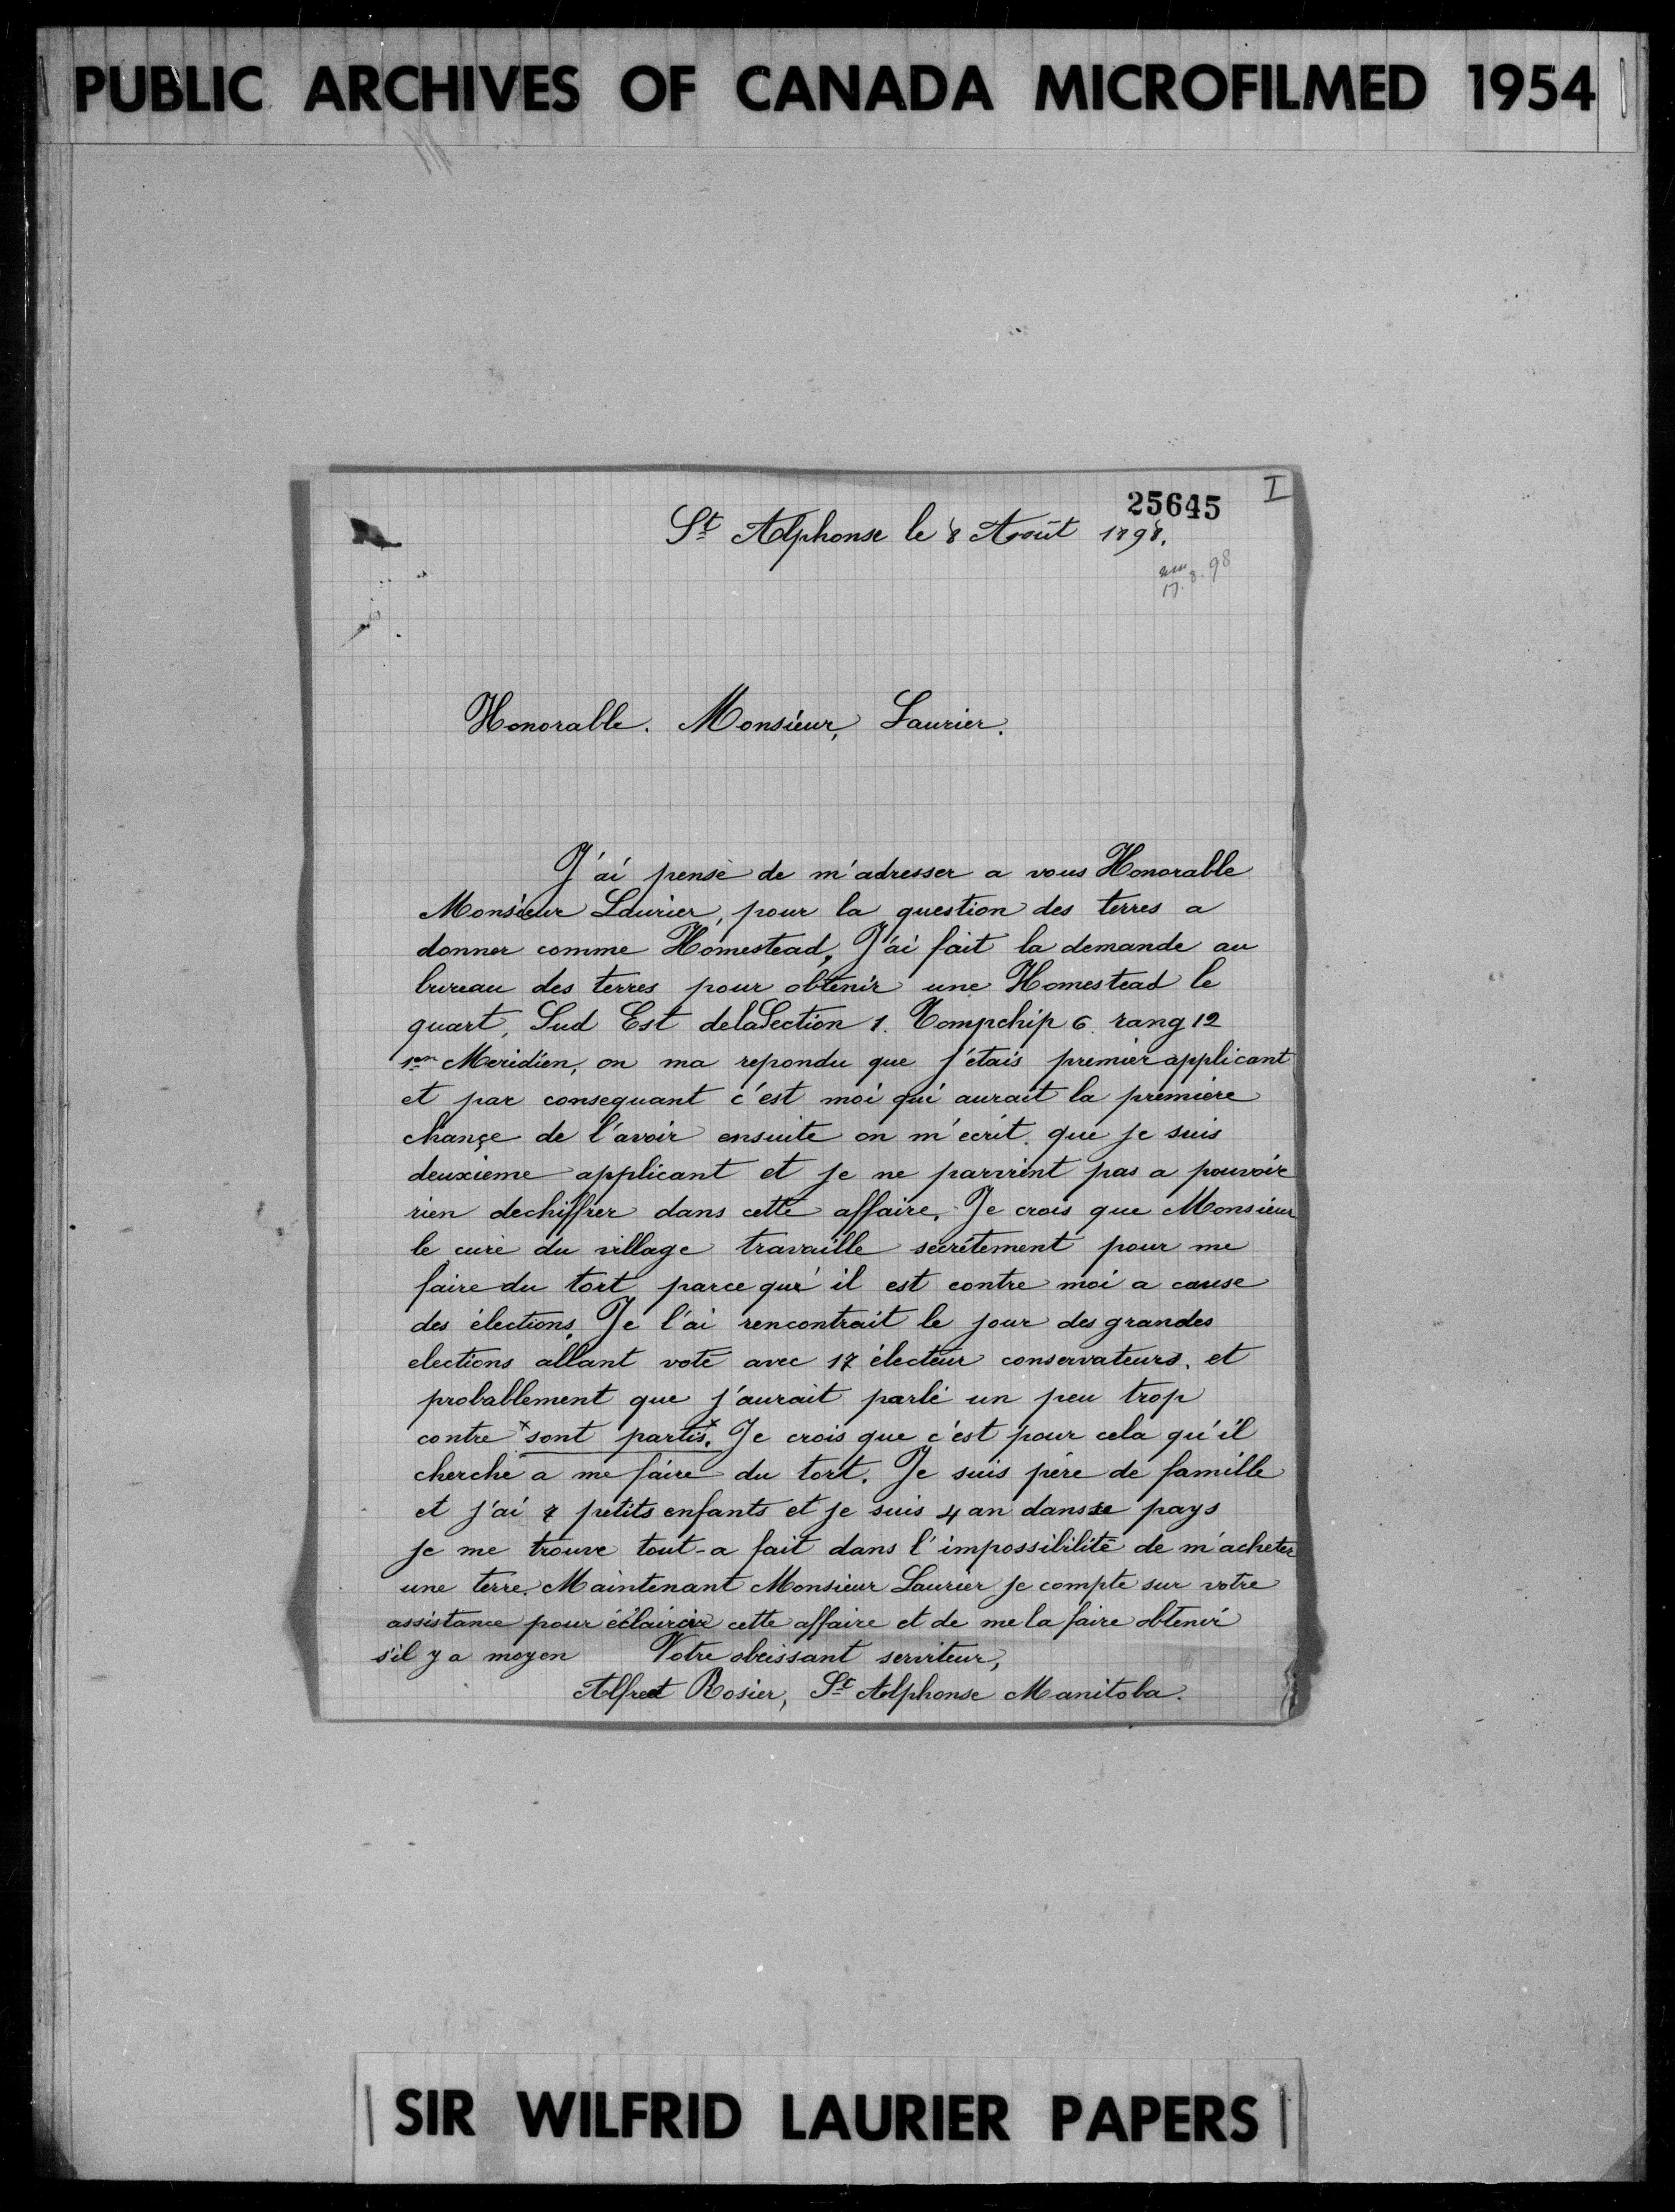 PUBLIC ARCHIVES OF CANADA MICROFILMED 1954
25645 I
St Alphonse le 8 Août 1898.
17.8.98
Honorable. Monsieur, Laurier.
J'ai pensè de m'adresser a vous Honorable
Monsieur Laurier, pour la question des terres a
donner comme Homestead, J'ai fait la demande au
bureau des terres pour obtenir une Homestead le
quart, Sud Est dela Section 1. Tompchip 6. rang 12
1er Meridien, on ma repondu que j'étais premier applicant
et par consequant c'est moi qui aurait la première
chançe de l'avoir ensuite on m'écrit. que je suis
deuxieme applicant et je ne parvient pas a pouvoir
rien dechiffrer dans cette affaire, Je crois que Monsieur
le curé du village travaille secrètement pour me
faire du tort parce qu'il est contre moi a cause
des élections, Je l'ai rencontrait le jour des grandes
elections allant voté avec 17 électeur conservateurs. et
probablement que j'aurait parlé un peu trop
contre x sont partis. x Je crois que c'est pour cela qu'il
cherche a me faire du tort. Je suis père de famille
et j'ai 7 petits enfants et je suis 4 an dans se pays
je me trouve tout-a fait dans l'impossibilité de m'acheter
une terre. Maintenant Monsieur Laurier je compte sur votre
assistance pour éclaircir cette affaire et de me la faire obtenir
s'il y a moyen Votre obeissant serviteur,
Alfred Rosier, St Alphonse Manitoba.
SIR WILFRID LAURIER PAPERS